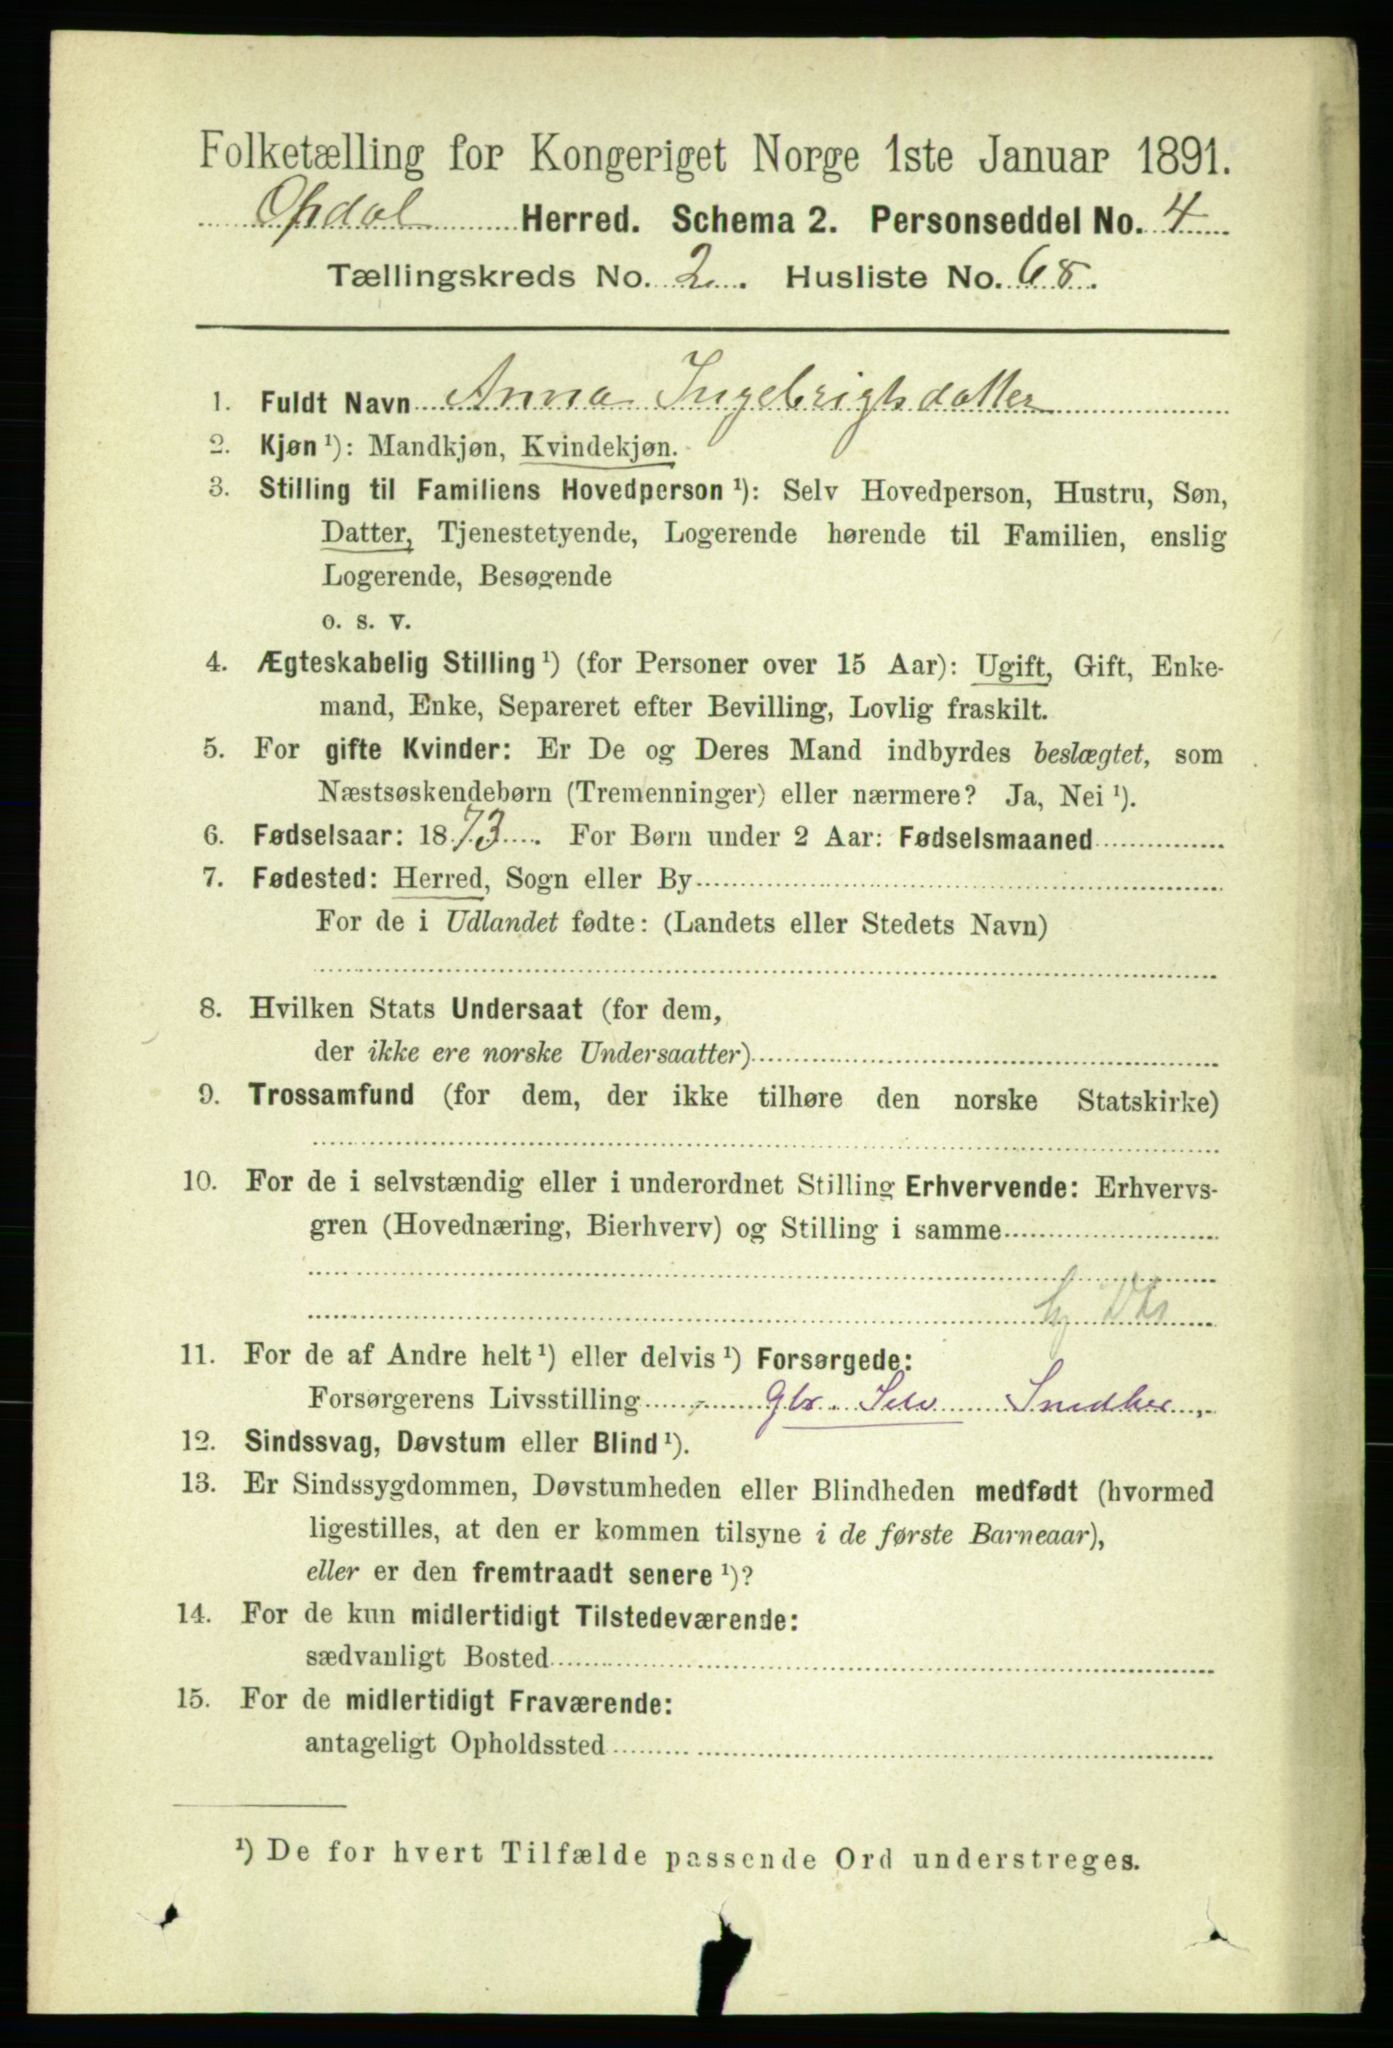 Folketælling for Kongeriget Norge 1ste Januar 1891.
Opdal Herred. Schema 2. Personseddel No. 4
Tællingskreds No. 2. Husliste No. 68.
1. Fuldt Navn Anna Ingebrigtsdatter
2. Kjøn ¹): Mandkjøn, Kvindekjøn.
3. Stilling til Familiens Hovedperson ¹): Selv Hovedperson, Hustru, Søn,
Datter, Tjenestetyende, Logerende hørende til Familien, enslig
Logerende, Besøgende
o. s. v.
4. Ægteskabelig Stilling ¹) (for Personer over 15 Aar): Ugift, Gift, Enke-
mand, Enke, Separeret efter Bevilling, Lovlig fraskilt.
5. For gifte Kvinder: Er De og Deres Mand indbyrdes beslægtet, som
Næstsøskendebørn (Tremenninger) eller nærmere? Ja, Nei ¹).
6. Fødselsaar: 1873. For Børn under 2 Aar: Fødselsmaaned
7. Fødested: Herred, Sogn eller By
For de i Udlandet fødte: (Landets eller Stedets Navn)
8. Hvilken Stats Undersaat (for dem,
der ikke ere norske Undersaatter)
9. Trossamfund (for dem, der ikke tilhøre den norske Statskirke)
10. For de i selvstændig eller i underordnet Stilling Erhvervende: Erhvervs-
gren (Hovednæring, Bierhverv) og Stilling i samme
11. For de af Andre helt ¹) eller delvis ¹) Forsørgede:
Forsørgerens Livsstilling Gbr. Selv
12. Sindssvag, Døvstum eller Blind ¹).
13. Er Sindssygdommen, Døvstumheden eller Blindheden medfødt (hvormed
ligestilles, at den er kommen tilsyne i de første Barneaar),
eller er den fremtraadt senere ¹)?
14. For de kun midlertidigt Tilstedeværende:
sædvanligt Bosted
15. For de midlertidigt Fraværende:
antageligt Opholdssted
¹) De for hvert Tilfælde passende Ord understreges.